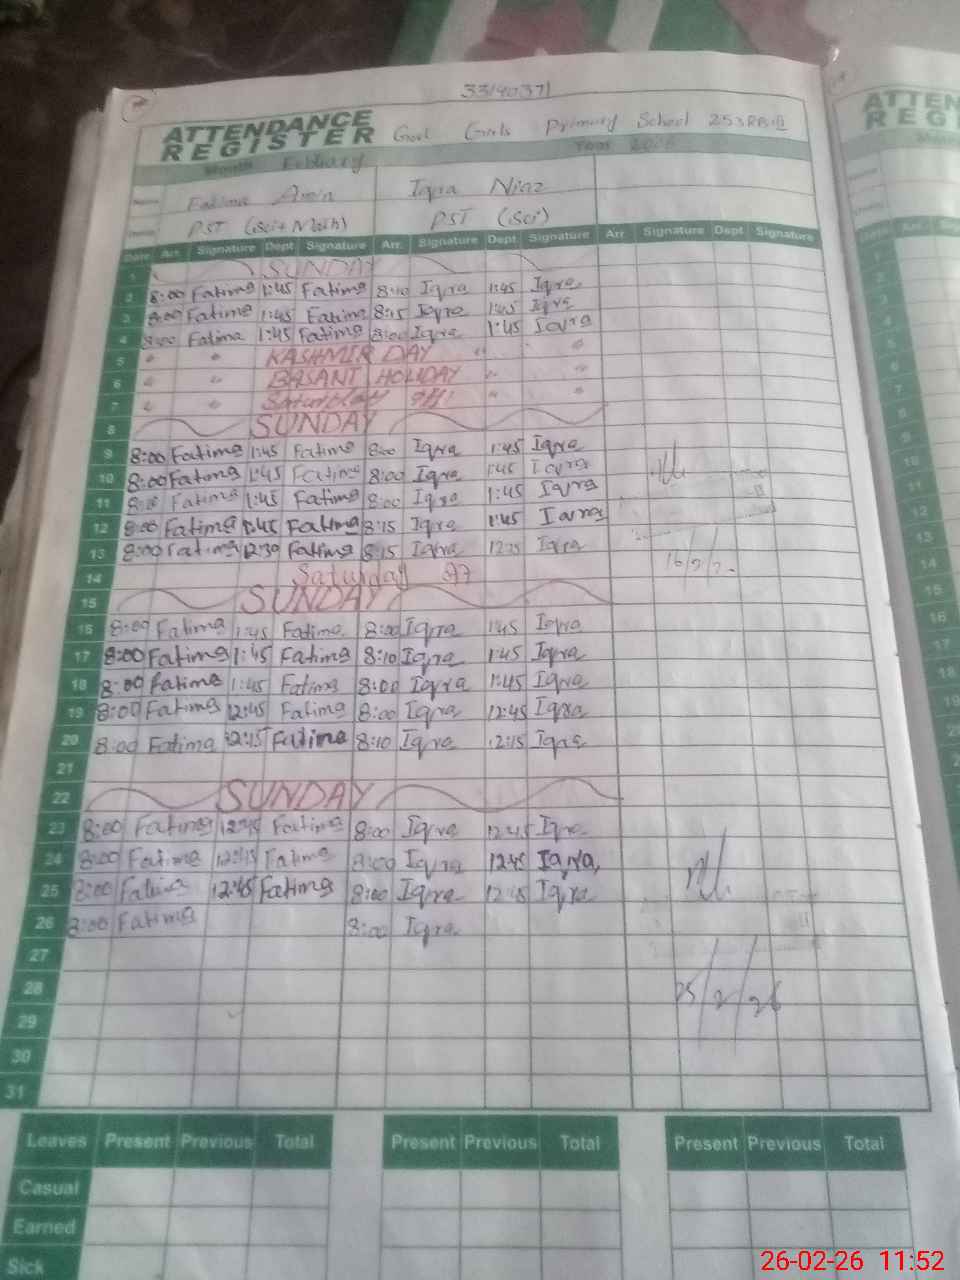 33140371
ATTENDANCE REGISTER Govt Girls Primary School 253 RB III
Month February Year 2026
Name Fatima Amin Iqra Niaz
PST (Sci+Math) PST (Sci)
Date Arr. Signature Dept Signature Arr. Signature Dept Signature Arr Signature Dept Signature
1 SUNDAY
2 8:00 Fatima 1:45 Fatima 8:10 Iqra 1:45 Iqra
3 8:00 Fatima 1:45 Fatima 8:15 Iqra 1:45 Iqra
4 8:00 Fatima 1:45 Fatima 8:00 Iqra 1:45 Iqra
5 " " KASHMIR DAY " "
6 " " BASANT HOLIDAY " "
7 " " Saturday off! " "
8 SUNDAY
9 8:00 Fatima 1:45 Fatima 8:00 Iqra 1:45 Iqra
10 8:00 Fatima 1:45 Fatima 8:00 Iqra 1:45 Iqra
11 8:00 Fatima 1:45 Fatima 8:00 Iqra 1:45 Iqra
12 8:00 Fatima 1:45 Fatima 8:15 Iqra 1:45 Iqra
13 8:00 Fatima 12:30 Fatima 8:15 Iqra Iqra
14 Saturday off
15 SUNDAY
16 8:00 Fatima 1:45 Fatima 8:00 Iqra 1:45 Iqra
17 8:00 Fatima 1:45 Fatima 8:10 Iqra 1:45 Iqra
18 8:00 Fatima 1:45 Fatima 8:00 Iqra 1:45 Iqra
19 8:00 Fatima 12:45 Fatima 8:00 Iqra 12:45 Iqra
20 8:00 Fatima 12:15 Fatima 8:10 Iqra 12:15 Iqra
21
22 SUNDAY
23 8:00 Fatima 12:45 Fatima 8:00 Iqra 12:45 Iqra
24 8:00 Fatima 12:45 Fatima 8:00 Iqra 12:45 Iqra
25 8:00 Fatima 12:45 Fatima 8:00 Iqra 12:45 Iqra
26 8:00 Fatima 8:00 Iqra
27
28
25/2/26
29
30
31
Leaves Present Previous Total Present Previous Total Present Previous Total
Casual
Earned
Sick
26-02-26 11:52